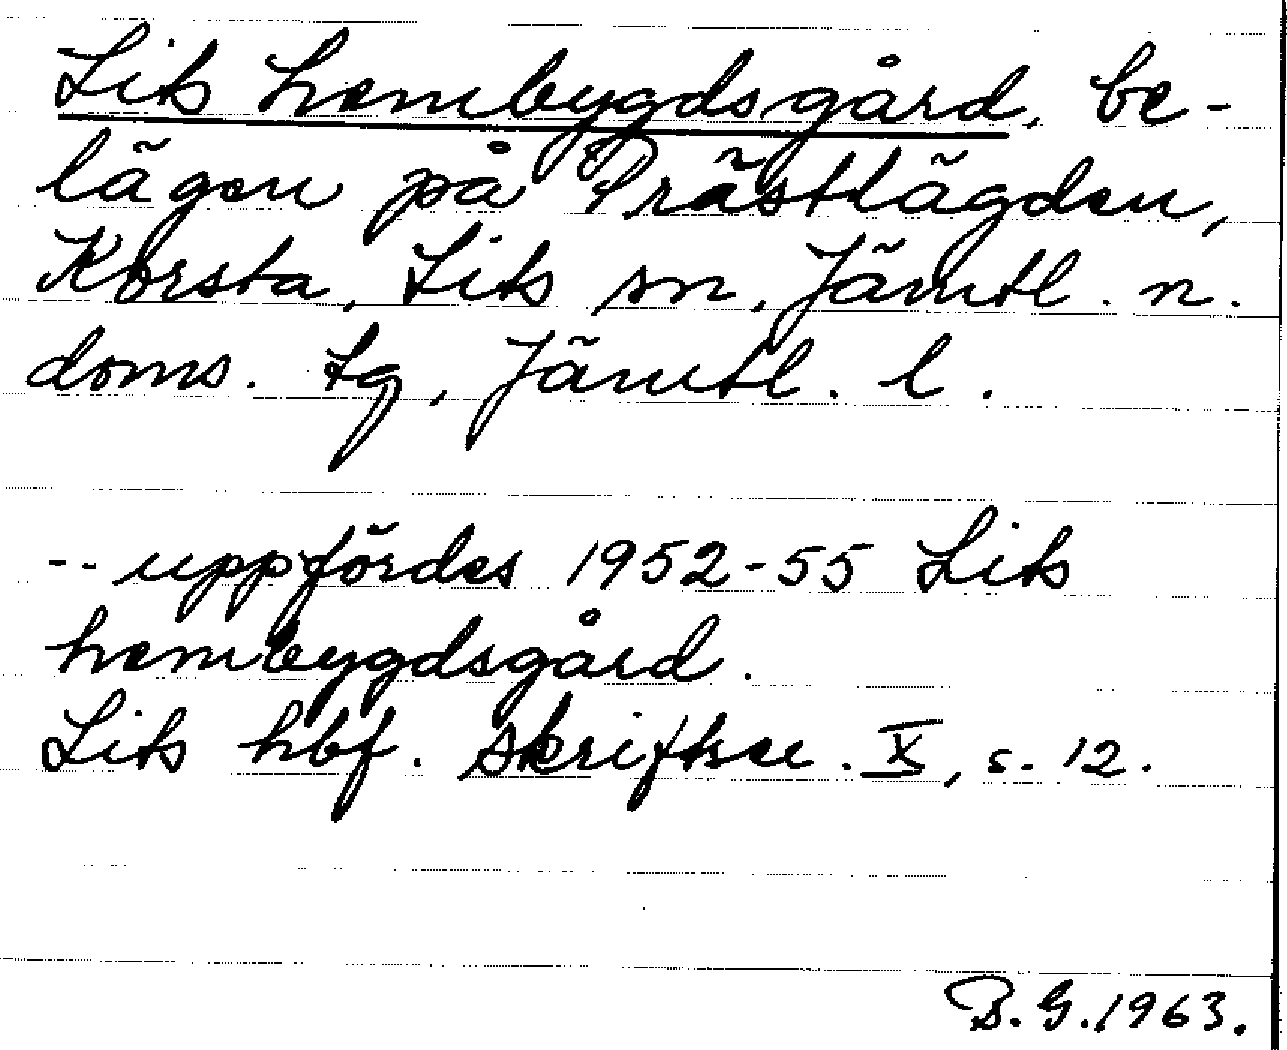 Lits hembygdsgård, be-
lägen på Prästlägden,
Korsta, Lits sn, Jämtl. n.
doms. tg, Jämtl. l.
-- uppfördes 1952-55 Lits
hembygdsgård.
Lits hbf. skriftser. X, s. 12.
B.G. 1963.